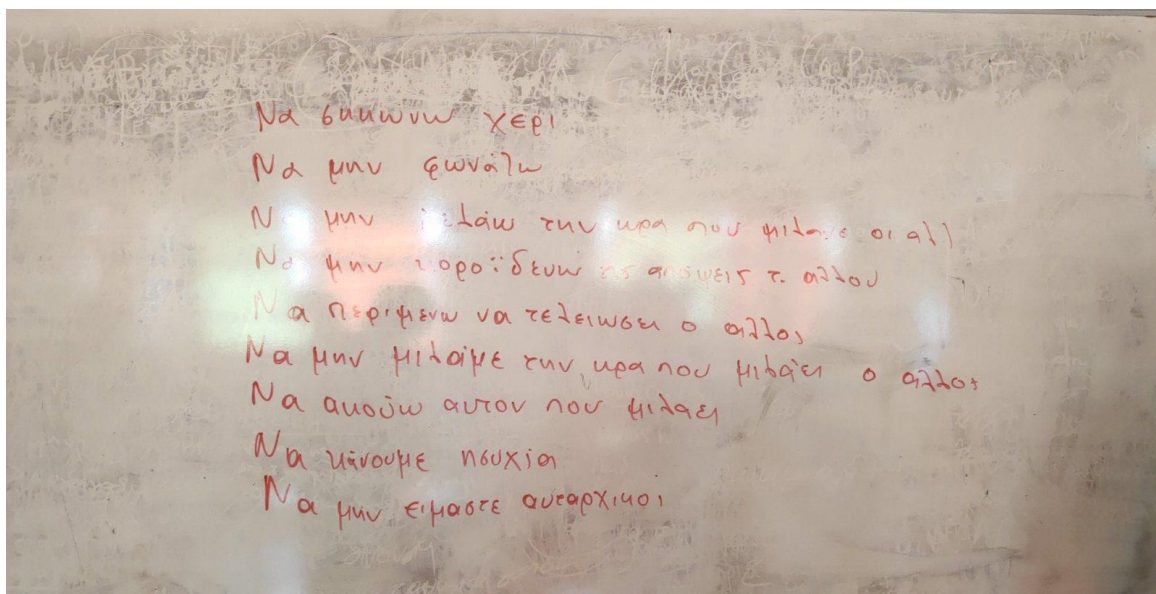 Να σηκωνω χερι
Να μην φωνάζω
Να μην μιλάω την ωρα που μιλανε οι αλλ
Να μην κοροϊδευω τις αποψεις τ. αλλου
Να περιμενω να τελειωσει ο αλλος
Να μην μιλάμε την ωρα που μιλάει ο αλλος
Να ακούω αυτον που μιλαει
Να κάνουμε ησυχία
Να μην ειμαστε αυταρχικοι